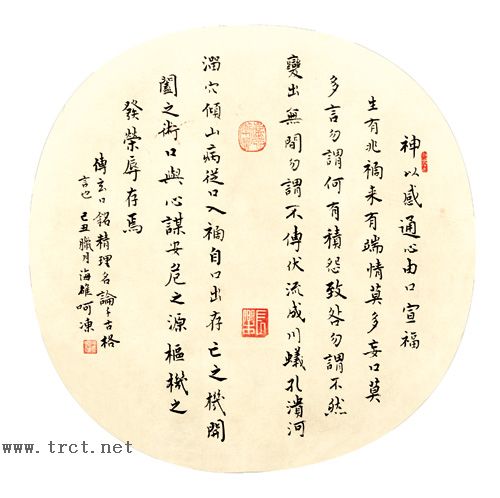 神以感通心由口宣福
生有兆禍来有端情莫多妄口莫
多言勿謂何有積怨致咎勿謂不然
變出無間勿謂不傳伏流成川蟻孔潰河
溜穴傾山病從口入禍自口出存亡之機開
闔之術口與心謀安危之源樞機之
發榮辱存焉
傅玄口銘精理名論千古格
言也己丑臘月海雄呵凍
www.trct.net